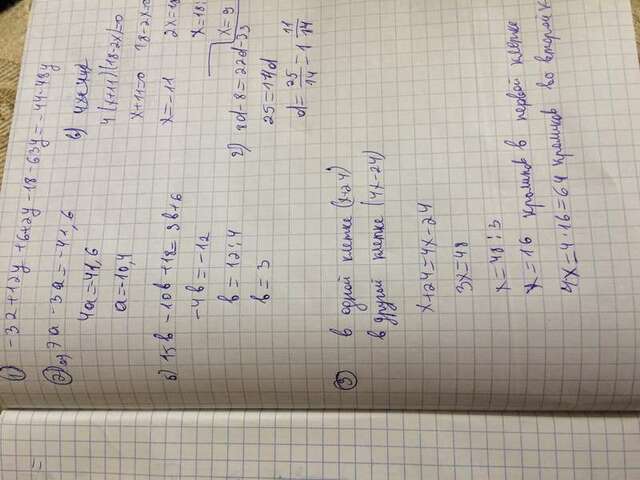 =
① -32+12y+6+2y-18-63y=-44-48y
② а) 7a-3a=-41,6
4a=-41,6
a=-10,4
б) 15b-10b+18=9b+6
-4b=-12
b=12:4
b=3
в)
4(x+11)(18-2x)=0
x+11=0 18-2x=0
x=-11 2x=18
x=18:
x=9
г) 8d-8=22d-33
25=14d
d=25/14=1 11/14
③ в одной клетке (x+24)
в другой клетке (4x-24)
x+24=4x-24
3x=48
x=48:3
x=16 кроликов в первой клетке
4x=4·16=64 кроликов во второй к